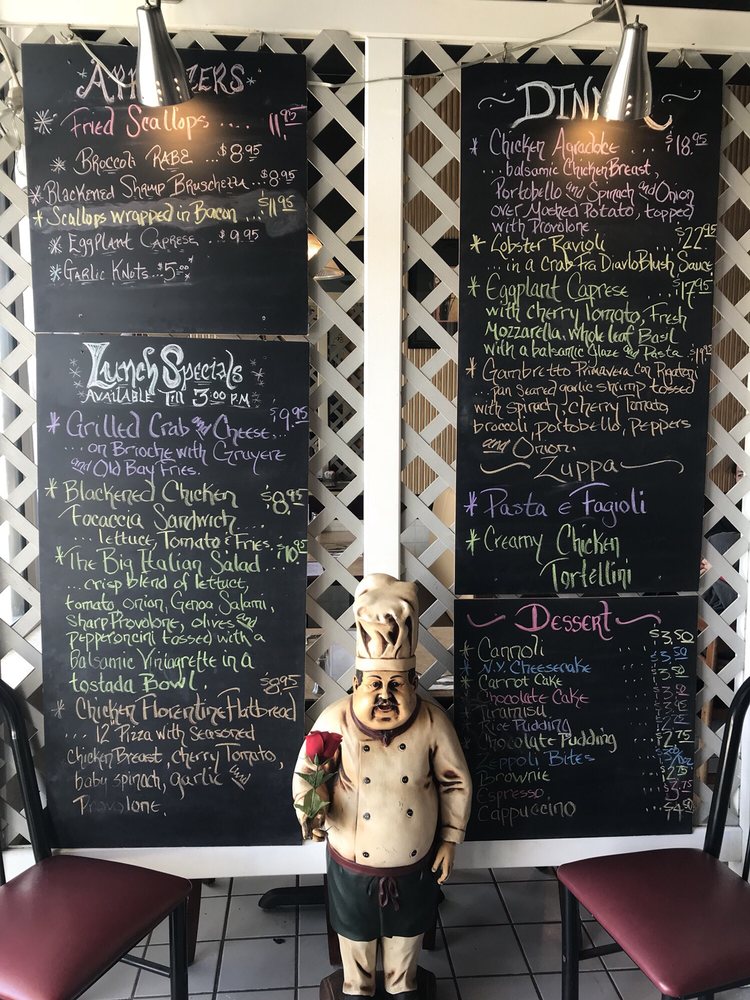 APPETIZERS
Fried Scallops .... 11.95
Broccoli RABE ... $8.95
Blackened Shrimp Bruschezza .. $8.95
Scallops wrapped in Bacon ... $11.95
Eggplant Caprese ... $9.95
Garlic Knots ... $5.00
Lunch Specials
AVAILABLE Till 3:00 P.M
Grilled Crab and Cheese ... $9.95
... on Brioche with Gruyere
and Old Bay Fries.
Blackened Chicken $8.95
Focaccia Sandwich ....
... lettuce, Tomato & Fries.
The Big Italian Salad ... $10.95
... crisp blend of lettuce,
tomato, onion, Genoa Salami,
Sharp Provolone, olives and
pepperoncini tossed with a
Balsamic Viniagrette in a
tostada Bowl. $8.95
Chicken Florentine Flatbread
... 12" Pizza with Seasoned
Chicken Breast, cherry Tomato,
baby spinach, garlic and
Provolone.
DINNER
Chicken Agradolce ... $18.95
... balsamic Chicken Breast,
Portobello and Spinach and Onion
over Mashed Potato, topped
with Provolone
Lobster Ravioli ... $22.95
... in a Crab Fra Diavlo Blush Sauce
Eggplant Caprese .... $17.95
with cherry Tomato, Fresh
Mozzarella, whole leaf Basil
with a balsamic Glaze and Pasta
Gambretto Primavera con Rigatoni
... pan seared garlic shrimp tossed
with spinach, cherry Tomato,
broccoli, portobello, peppers
and Onion.
Zuppa
Pasta e Fagioli
Creamy Chicken
Tortellini
Dessert
Cannoli $3.50
N.Y. Cheesecake
Carrot Cake
Chocolate Cake
Tiramisu
Rice Pudding
Chocolate Pudding
Zeppoli Bites
Brownie
Espresso
Cappuccino